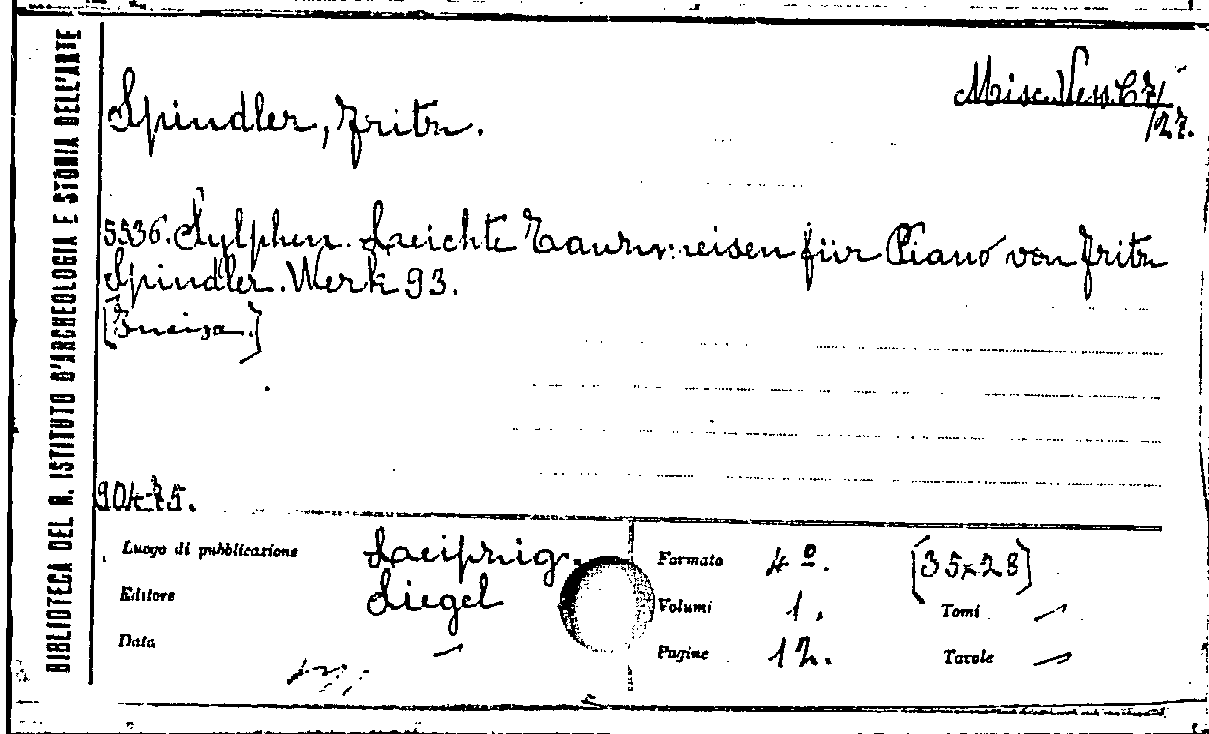 BIBLIOTECA DEL R. ISTITUTO D'ARCHEOLOGIA E STORIA DELL'ARTE
Misc. Vess. C 7/
/27.
Spindler, Fritz.
5536. Sylphen. Leichte Tanzweisen für Piano von Fritz
Spindler. Werk 93.
90475.
Luogo di pubblicazione Leipzig.
Editore Siegel
Data –
Formato 4º. [35x28]
Volumi 1. Tomi –
Pagine 12. Tavole –